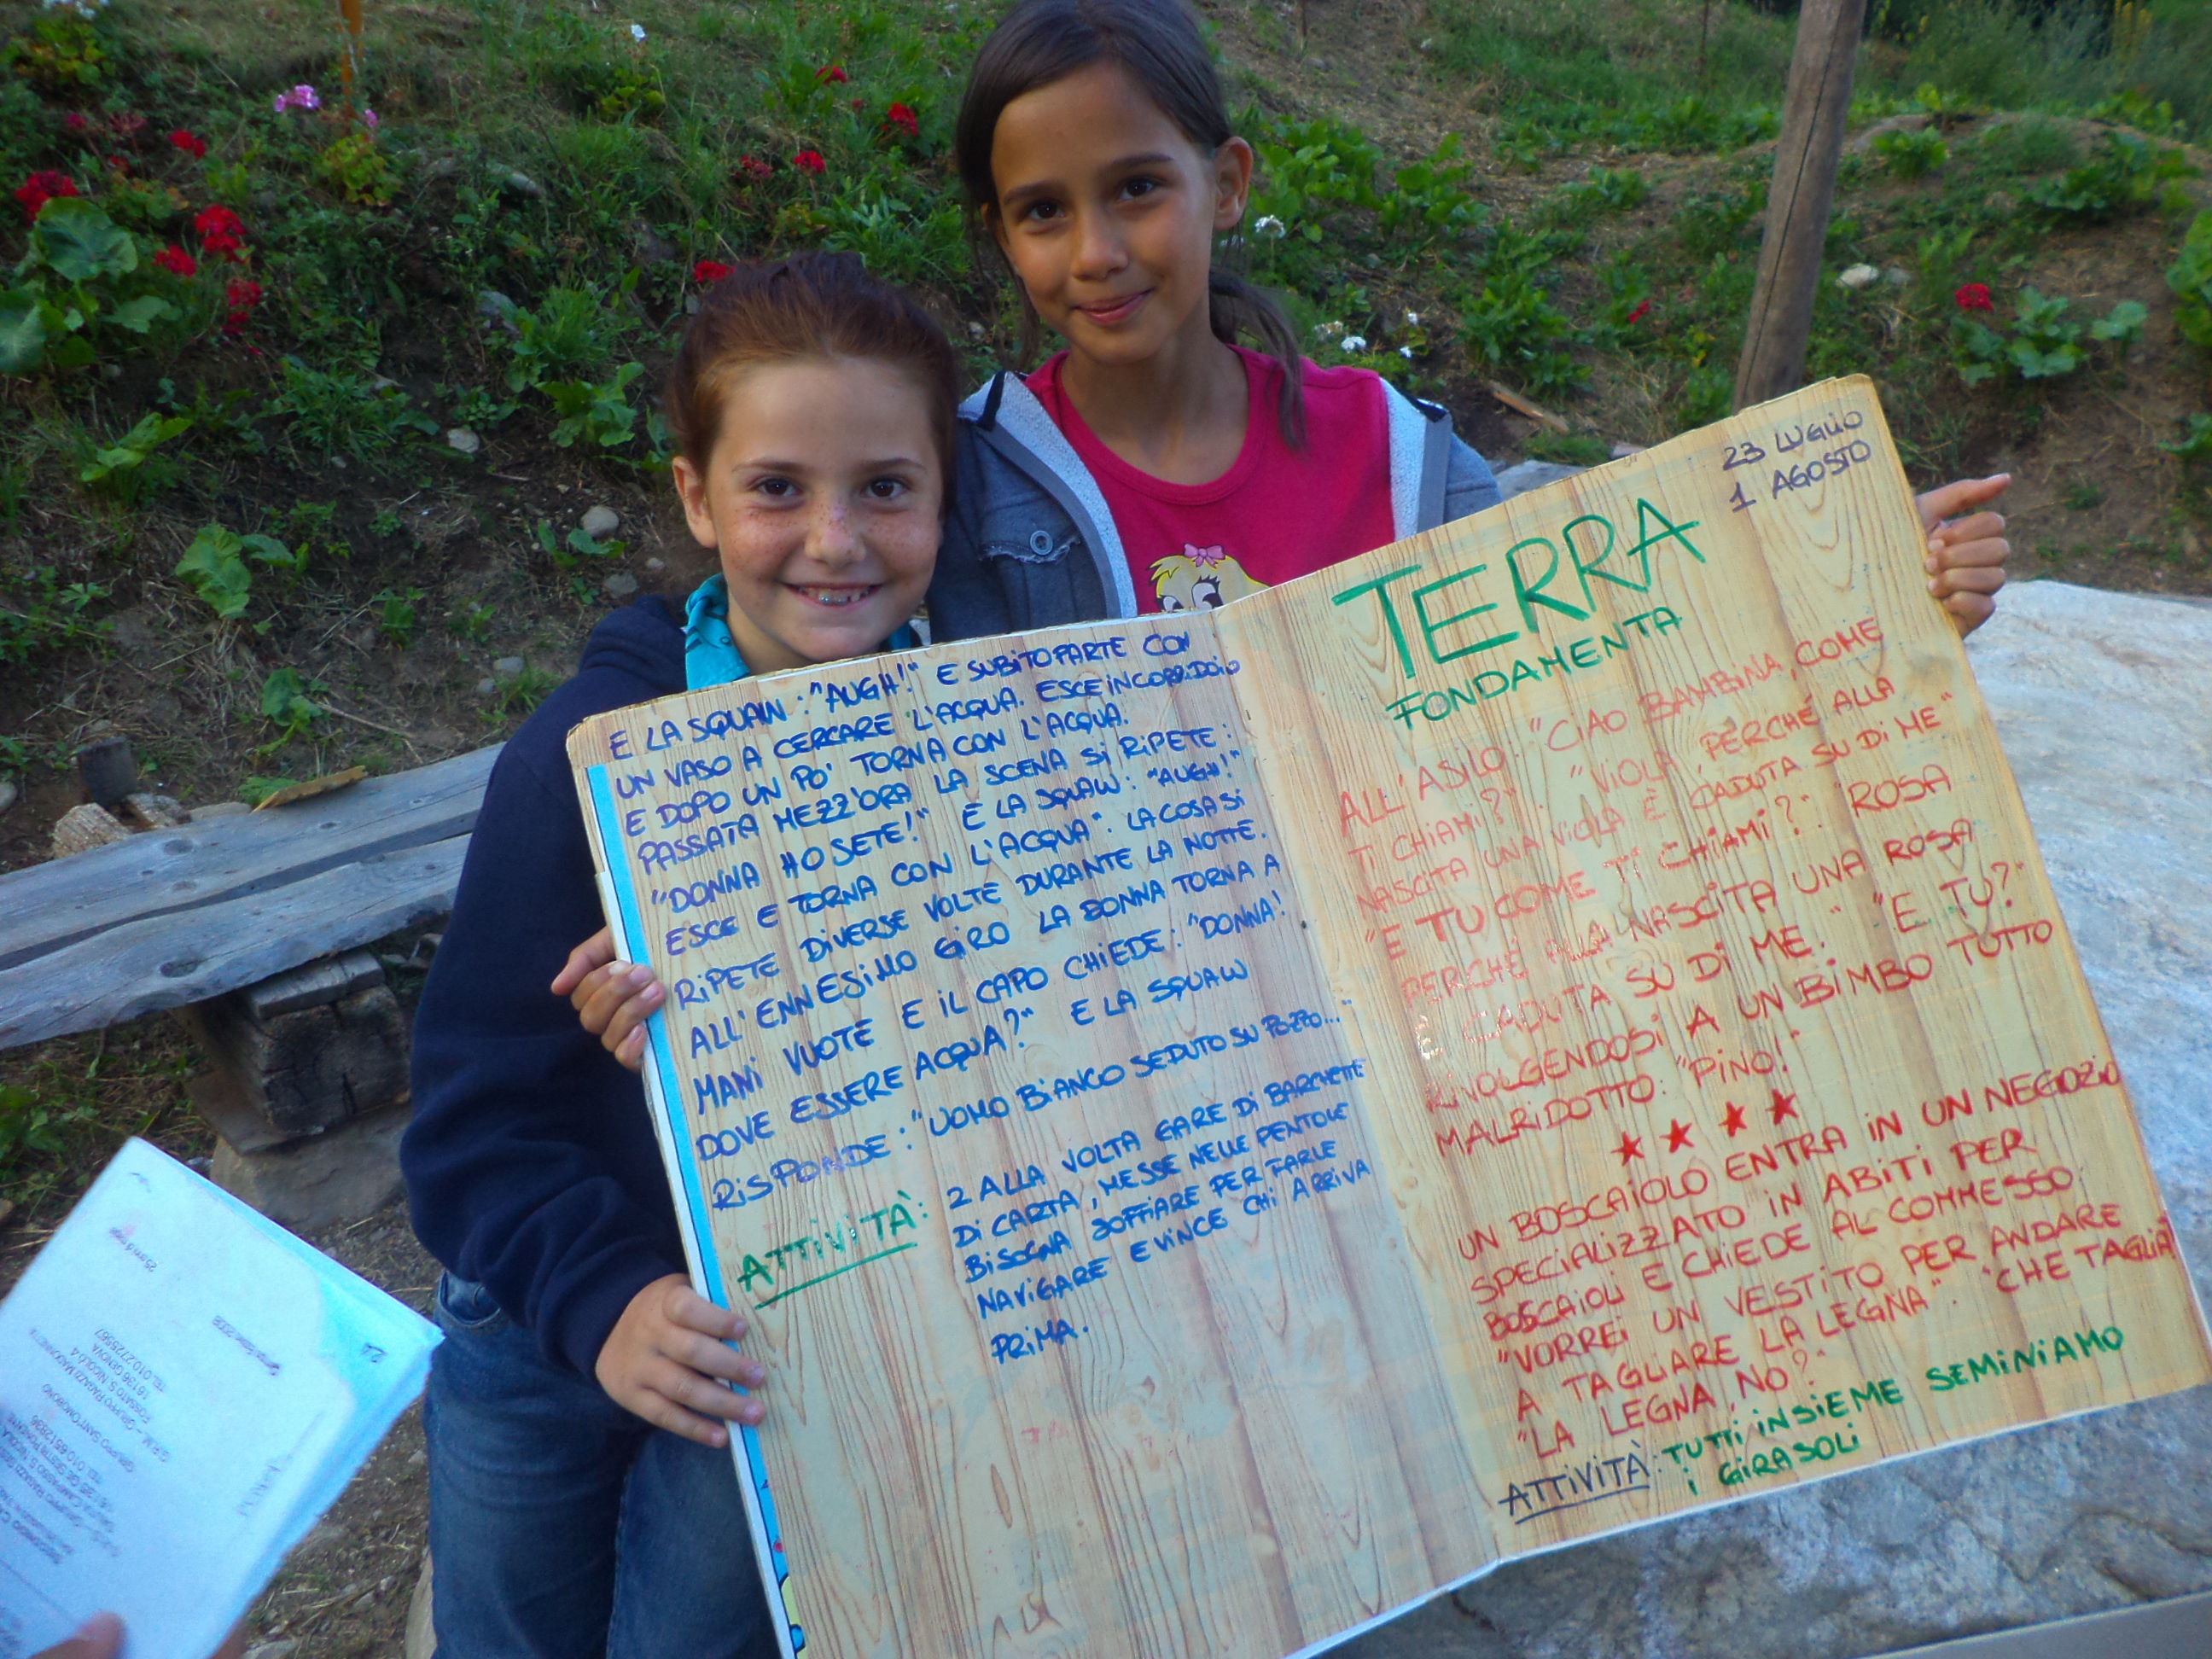 E LA SQUAW: "AUGH!" E SUBITO PARTE CON
UN VASO A CERCARE L'ACQUA. ESCE IN CORRIDOIO
E DOPO UN PO' TORNA CON L'ACQUA.
PASSATA MEZZ'ORA LA SCENA SI RIPETE:
"DONNA HO SETE!" E LA SQUAW: "AUGH!"
ESCE E TORNA CON L'ACQUA". LA COSA SI
RIPETE DIVERSE VOLTE DURANTE LA NOTTE.
ALL'ENNESIMO GIRO LA DONNA TORNA A
MANI VUOTE E IL CAPO CHIEDE: "DONNA!
DOVE ESSERE ACQUA?" E LA SQUAW
RISPONDE: "UOMO BIANCO SEDUTO SU POZZO..."
ATTIVITÀ: 2 ALLA VOLTA GARE DI BARCHETTE
DI CARTA, MESSE NELLE PENTOLE
BISOGNA SOFFIARE PER FARLE
NAVIGARE E VINCE CHI ARRIVA
PRIMA.
23 LUGLIO
1 AGOSTO
TERRA
FONDAMENTA
ALL'ASILO: "CIAO BAMBINA, COME
TI CHIAMI?". "VIOLA, PERCHÉ ALLA
NASCITA UNA VIOLA È CADUTA SU DI ME"
"E TU COME TI CHIAMI?". "ROSA
PERCHÉ ALLA NASCITA UNA ROSA
È CADUTA SU DI ME." "E TU?"
RIVOLGENDOSI A UN BIMBO TUTTO
MALRIDOTTO: "PINO!"
UN BOSCAIOLO ENTRA IN UN NEGOZIO
SPECIALIZZATO IN ABITI PER
BOSCAIOLI E CHIEDE AL COMMESSO:
"VORREI UN VESTITO PER ANDARE
A TAGLIARE LA LEGNA". "CHE TAGLIA?"
"LA LEGNA, NO?"
ATTIVITÀ: TUTTI INSIEME SEMINIAMO
I GIRASOLI
24
FOSSATO S. NICOLÒ 4
16136 GENOVA
TEL. 010.2725567